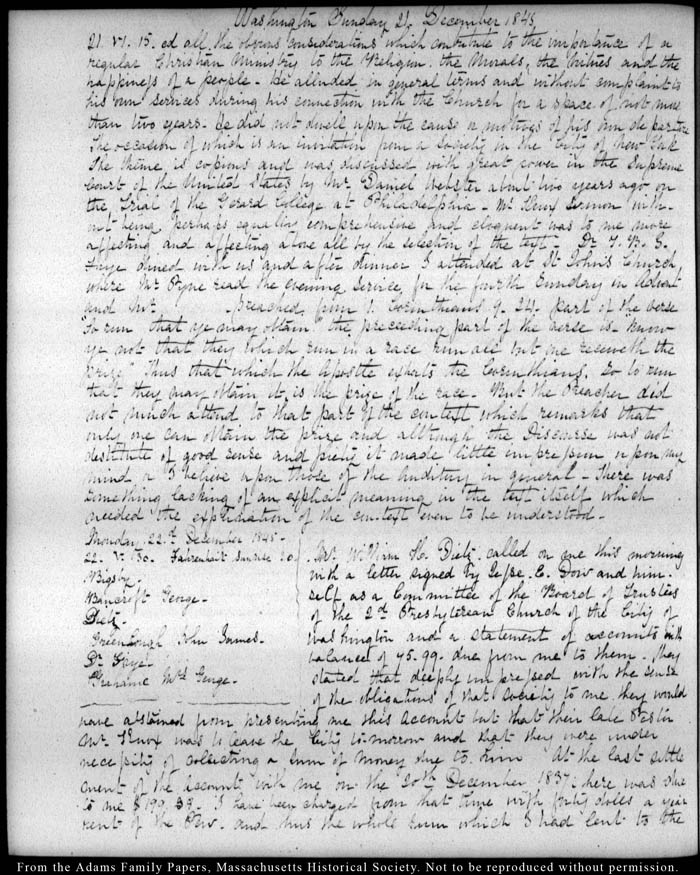 Washington Sunday 21. December 1845.
21. VI. 15. ed all the obvious considerations which contribute to the importance of a
regular Christian Ministry to the Religion, the Morals, the Virtues and the
happiness of a people. He alluded in general terms and without complaint to
his own services during his connection with the Church for a space of not more
than two years. He did not dwell upon the cause or motives of his own departure
The occasion of which is an invitation from a Society in the City of New York
The theme is copious and was discussed with great power in the Supreme
Court of the United States by Mr. Daniel Webster about two years ago on
the Trial of the Gerard College at Philadelphia. Mr Knox Sermon with-
not being perhaps equally comprehensive and eloquent was to me more
affecting and affecting above all by the selection of the text. Dr. T. B. S.
Frye dined with us and after dinner I attended at St John's Church
where Mr Pyne read the evening Service for the fourth Sunday in Advent
and Mr. preached from 1. Corinthians 9. 24. part of the verse
"So run that ye may obtain" the preceeding part of the verse is "Know
ye not that they which run in a race run all but one receiveth the
prize" Thus that which the Apostle exhorts the Corinthians, so to run
that they may obtain it, is the prize of the race. But the Preacher did
not much attend to that part of the context which remarks that
only one can obtain the prize and although the Discourse was not
destitute of good sense and piety it made little impression upon my
mind or I believe upon those of the auditory in general. There was
something lacking of an explicit meaning in the text itself which
needed the explanation of the context even to be understood.
Monday 22.d December 1845.
22. V. 30. Fahrenheit Sunrise 20
Bigsby.
Bancroft George.
Dietz.
Greenhough John James.
Dr Frye.
Grahame Mrs George.
Mr. William H. Dietz called on me this morning
with a letter signed by Jesse E. Dow and him-
self as a Committee of the Board of Trustees
of the 2d Presbyterean Church of the City of
Washington and a statement of accounts with
balance of 45.99. due from me to them. They
stated that deeply impressed with the sense
of the obligations of that society to me they would
have abstained from presenting me this account but that their late Pastor
Mr. Knox was to leave the City to-morrow and that they were under
necessity of collecting a sum of money due to him At the last settle
ment of the account with me on the 20th December 1837. there was due
to me $199.39. I have been charged from that time with forty doles a year
rent of the Pew. and thus the whole sum which I had lent to the
From the Adams Family Papers, Massachusetts Historical Society. Not to be reproduced without permission.